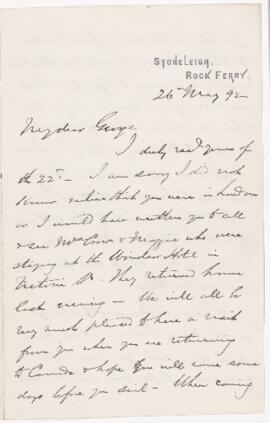 STONELEIGH,
ROCK FERRY.
26 May 92
My dear George
I duly recd yours of
the 22nd – I am sorry I did not
know that you were in London
or I would have written you to call
& see Mrs & Maggie who were
staying at the Windsor Hotel in
Victoria St. They returned home
last evening – We will all be
very much pleased to have a visit
from you when you are returning
to Canada & hope you will come some
days before you sail – When coming